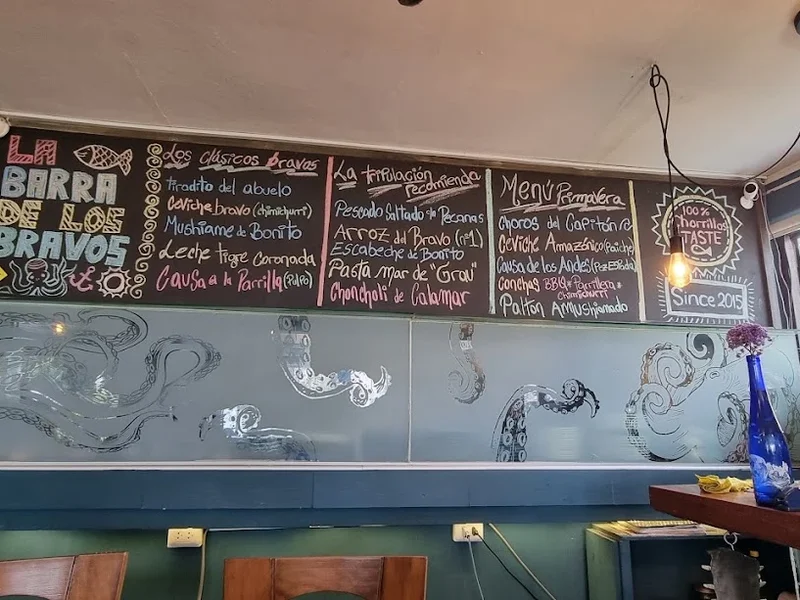 LA
BARRA
DE LOS
BRAVOS
Los clásicos bravos
tiradito del abuelo
Ceviche bravo (chimichurri)
Mushiame de Bonito
Leche tigre coronada
Causa a la Parrilla (Pulpo)
La tripulación
recomienda
Pescado Saltado
Arroz del Bravo (nº1)
Escabeche de Bonito
Pasta mar de "Grau"
Choncholi de Calamar
Menú Primavera
Choros del Capitón
Ceviche Amazónico (Paiche)
Causa de los Andes
Conchas BBQ Parrillera
Chimichurri
Paltón Amushiamado
100%
Chorrillos
TASTE
Since 2015